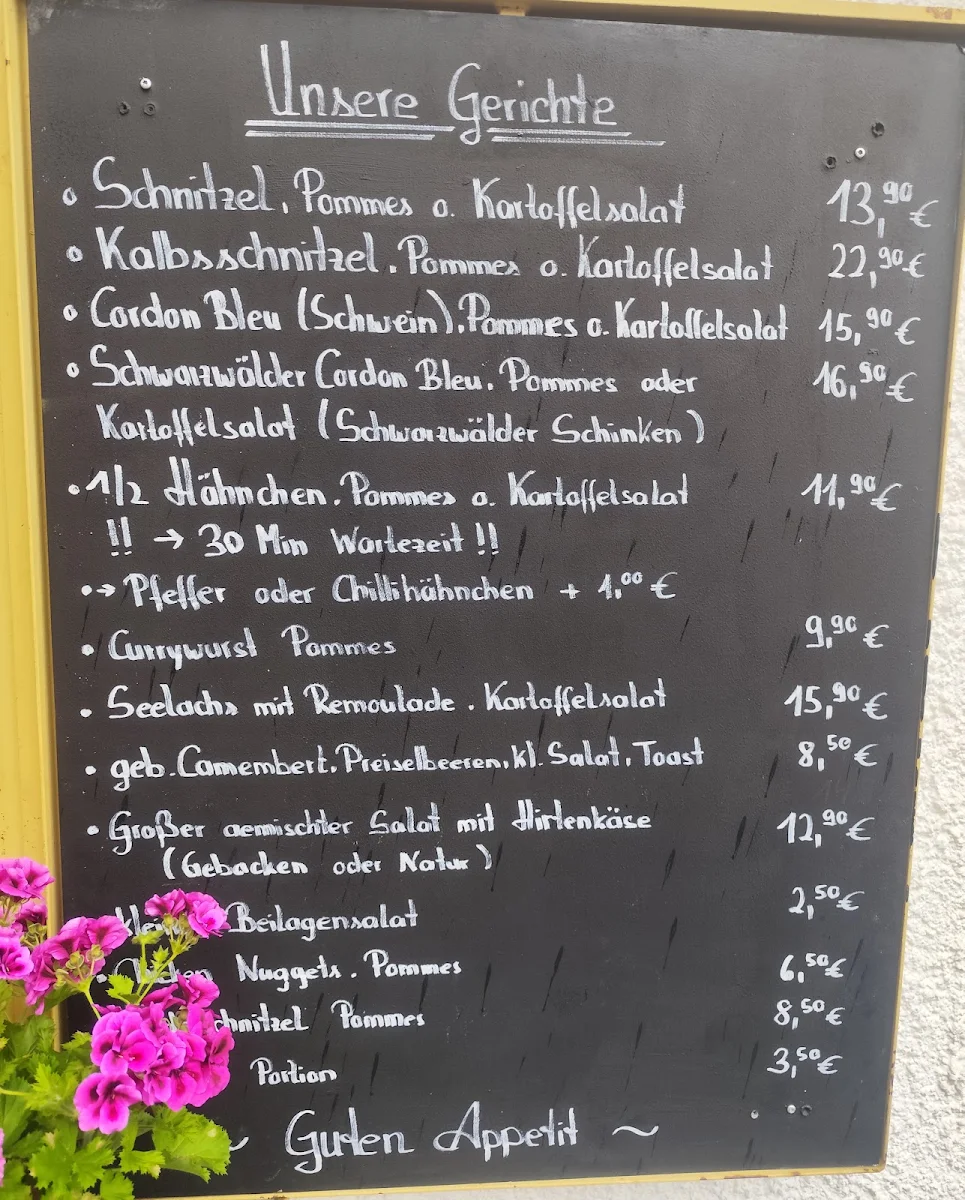 Unsere Gerichte
Schnitzel, Pommes o. Kartoffelsalat 13,90 €
Kalbsschnitzel, Pommes o. Kartoffelsalat 22,90 €
Cordon Bleu (Schwein), Pommes o. Kartoffelsalat 15,90 €
Schwarzwälder Cordon Bleu, Pommes oder 16,90 €
Kartoffelsalat (Schwarzwälder Schinken)
1/2 Hähnchen, Pommes o. Kartoffelsalat 11,90 €
!! → 30 Min Wartezeit !!
→ Pfeffer oder Chillihähnchen + 1,00 €
Currywurst Pommes 9,90 €
Seelachs mit Remoulade, Kartoffelsalat 15,90 €
geb. Camembert, Preiselbeeren, kl. Salat, Toast 8,50 €
Großer gemischter Salat mit Hirtenkäse 12,90 €
(Gebacken oder Natur)
Beilagensalat 2,50 €
Nuggets, Pommes 6,50 €
chnitzel Pommes 8,50 €
Portion 3,50 €
~ Guten Appetit ~